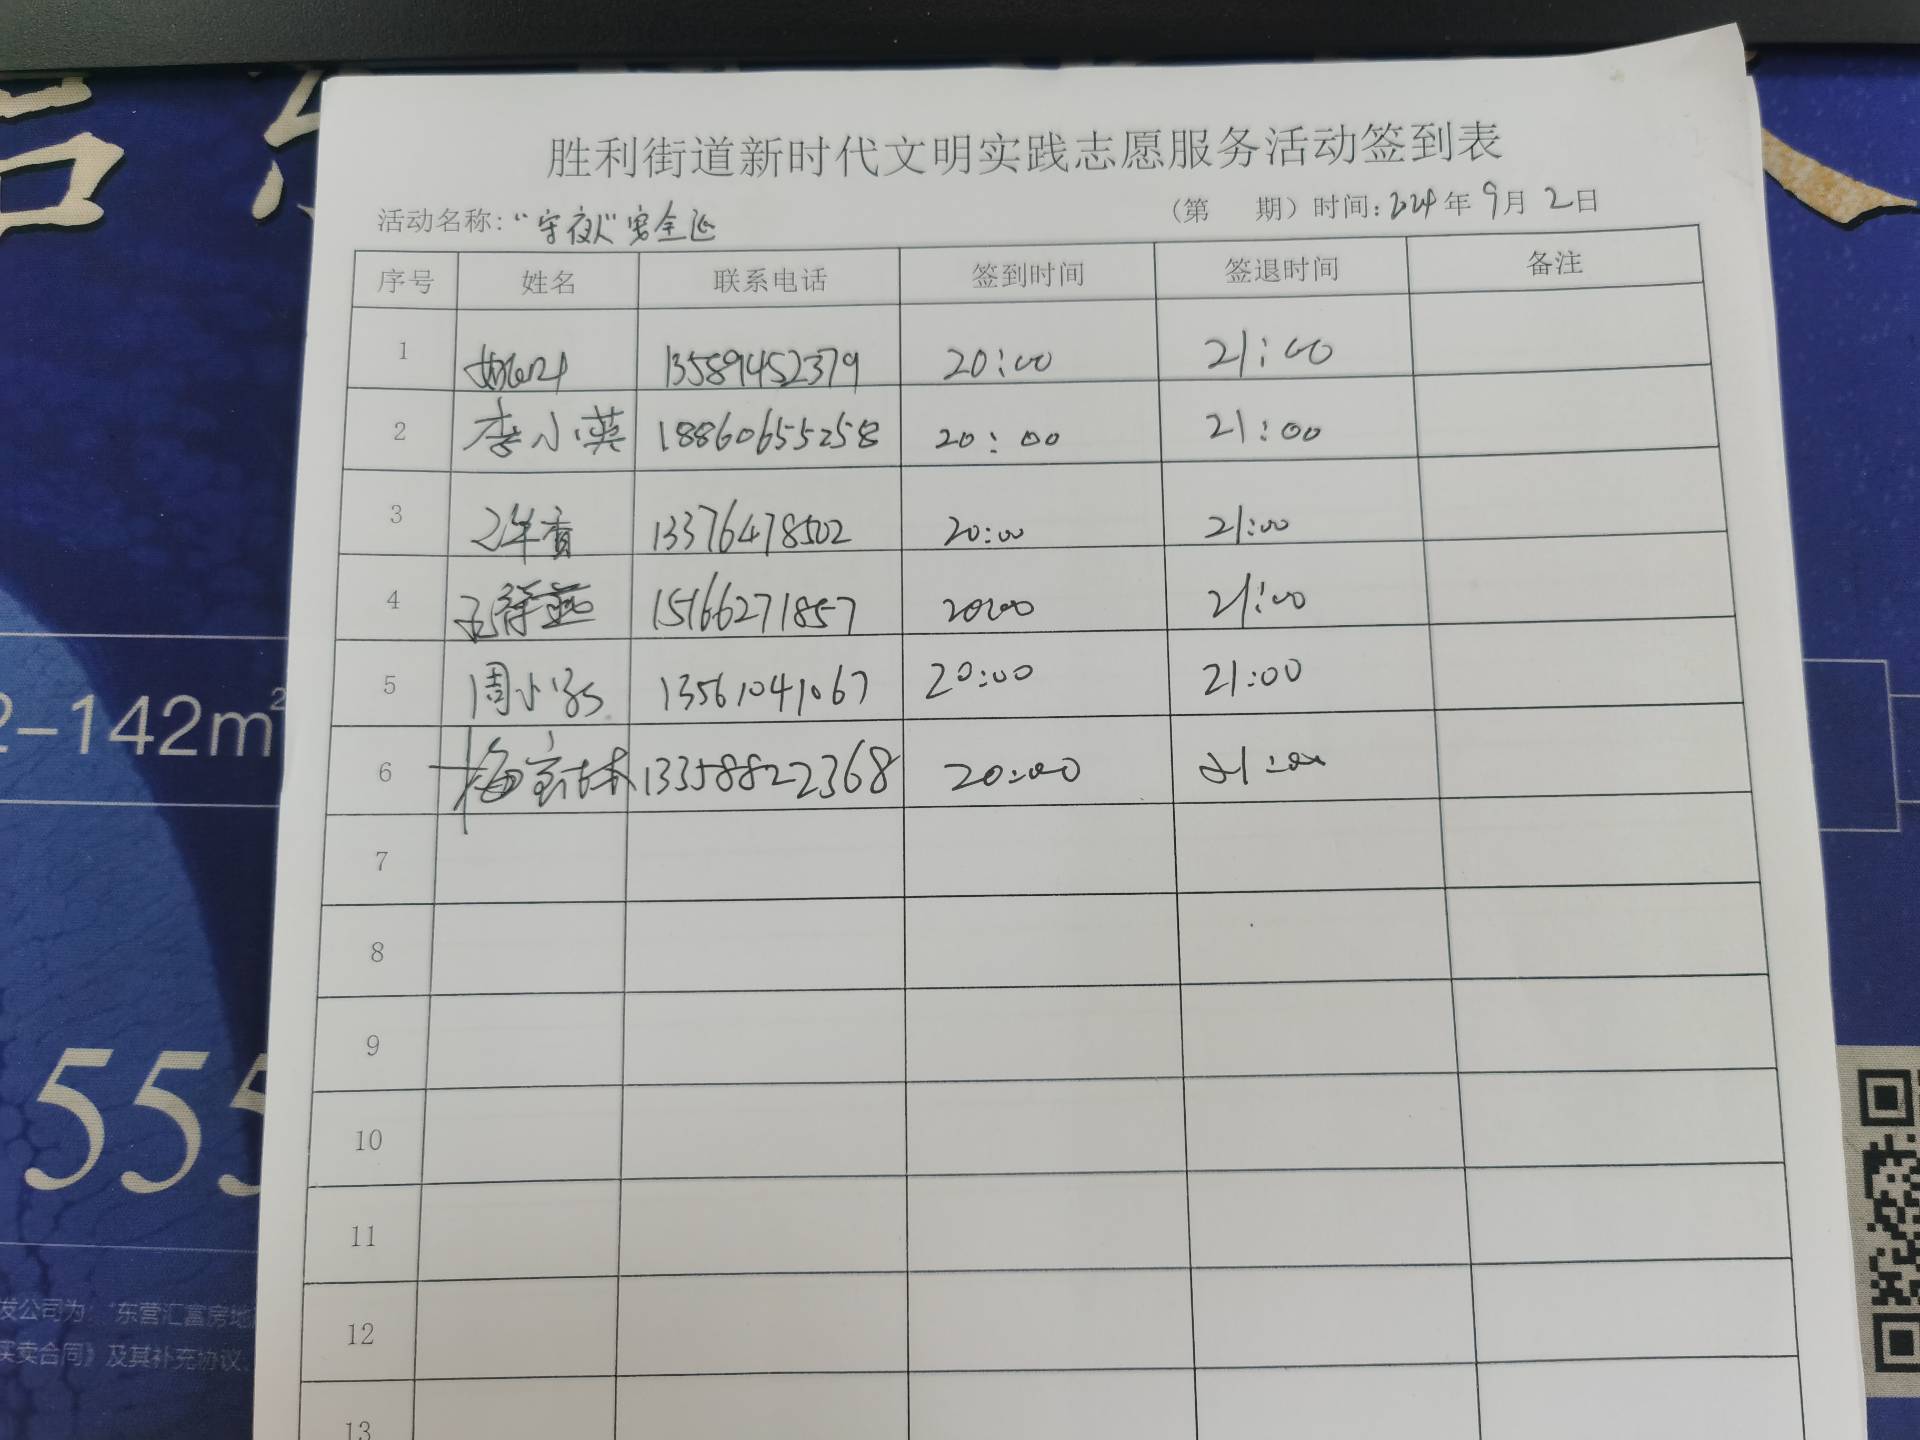 胜利街道新时代文明实践志愿服务活动签到表
活动名称:“守夜人”安全巡 （第 期）时间:2024年9月2日
序号 姓名 联系电话 签到时间 签退时间 备注
1 13589452379 20:00 21:00
2 李小英 18860655258 20:00 21:00
3 13376478502 20:00 21:00
4 15166271857 20:00 21:00
5 周小 13561041067 20:00 21:00
6 梅 13358822368 20:00 21:00
7
8
9
10
11
12
13
2-142m²
555
发公司为:“东营汇富房地
买卖合同》及其补充协议、